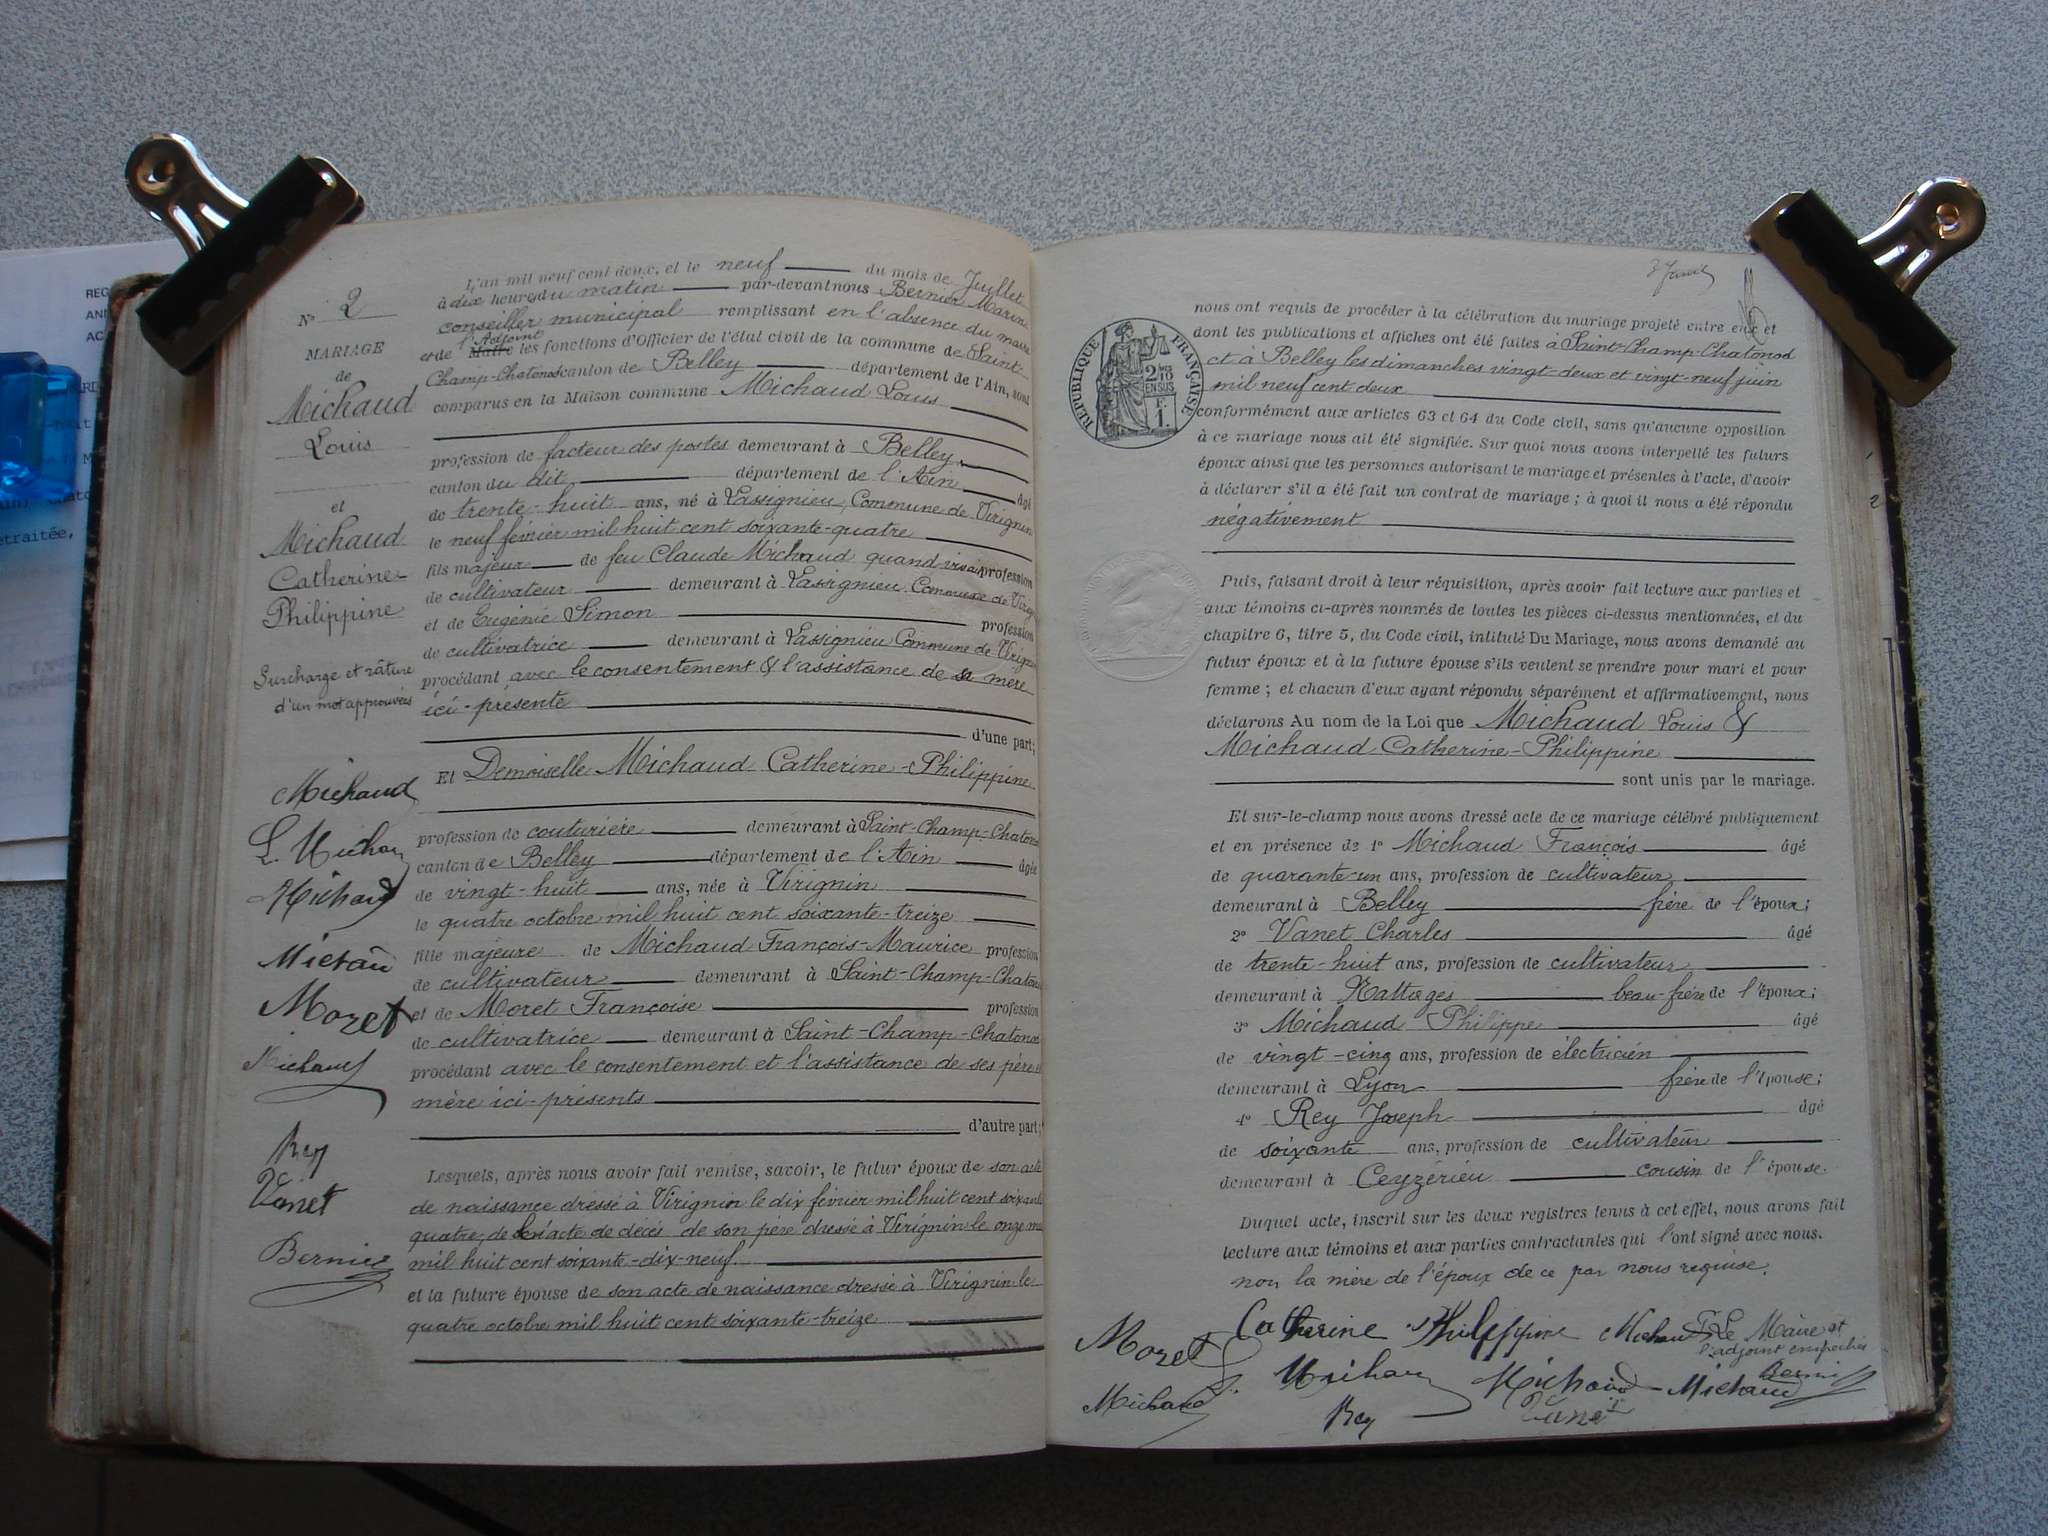 N° 2
MARIAGE
de
Michaud
Louis
et
Michaud
Catherine
Philippine
Surcharge et râture
d'un mot approuvées
Michaud
L. Michau
Michaud
Moret
Michaud
Rey
Vanet
Bernier
L'an mil neuf cent deux, et le neuf du mois de Juillet
à dix heures du matin par-devant nous Bernier Marin
conseiller municipal remplissant en l'absence du maire
et de l'Adjoint Maire les fonctions d'Officier de l'état civil de la commune de Saint-
Champ-Chatonod canton de Belley département de l'Ain, sont
comparus en la Maison commune Michaud Louis
profession de facteur des postes demeurant à Belley
canton du dit, département de l'Ain âgé
de trente-huit ans, né à Lassignieu, Commune de Virignin
le neuf février mil huit cent soixante-quatre
fils majeur de feu Claude Michaud quand vivait profession
de cultivateur demeurant à Lassignieu Commune de Virig
et de Eugénie Simon profession
de cultivatrice demeurant à Lassignieu Commune de Virignin
procédant avec le consentement & l'assistance de sa mère
ici-présente
d'une part;
Et Demoiselle Michaud Catherine-Philippine
profession de couturière demeurant à Saint-Champ-Chatonod
canton de Belley département de l'Ain âgée
de vingt-huit ans, née à Virignin
le quatre octobre mil huit cent soixante-treize
fille majeure de Michaud François-Maurice profession
de cultivateur demeurant à Saint-Champ-Chatonod
et de Moret Françoise profession
de cultivatrice demeurant à Saint-Champ-Chatonod
procédant avec le consentement et l'assistance de ses père et
mère ici-présents
d'autre part;
Lesquels, après nous avoir fait remise, savoir, le futur époux de son acte
de naissance dressé à Virignin le dix février mil huit cent soixante
quatre, de l'acte de décès de son père dressé à Virignin le onze mai
mil huit cent soixante-dix-neuf.
et la future épouse de son acte de naissance dressé à Virignin le
quatre octobre mil huit cent soixante-treize
RÉPUBLIQUE FRANÇAISE
2/10
EN SUS
F.
1.
nous ont requis de procéder à la célébration du mariage projeté entre eux et
dont les publications et affiches ont été faites à Saint-Champ-Chatonod
et à Belley les dimanches vingt-deux et vingt-neuf juin
mil neuf cent deux
conformément aux articles 63 et 64 du Code civil, sans qu'aucune opposition
à ce mariage nous ait été signifiée. Sur quoi nous avons interpellé les futurs
époux ainsi que les personnes autorisant le mariage et présentes à l'acte, d'avoir
à déclarer s'il a été fait un contrat de mariage; à quoi il nous a été répondu
négativement
Puis, faisant droit à leur réquisition, après avoir fait lecture aux parties et
aux témoins ci-après nommés de toutes les pièces ci-dessus mentionnées, et du
chapitre 6, titre 5, du Code civil, intitulé Du Mariage, nous avons demandé au
futur époux et à la future épouse s'ils veulent se prendre pour mari et pour
femme; et chacun d'eux ayant répondu séparément et affirmativement, nous
déclarons Au nom de la Loi que Michaud Louis &
Michaud Catherine-Philippine
sont unis par le mariage.
Et sur-le-champ nous avons dressé acte de ce mariage célébré publiquement
et en présence de 1° Michaud François âgé
de quarante-un ans, profession de cultivateur
demeurant à Belley frère de l'époux;
2° Vanet Charles âgé
de trente-huit ans, profession de cultivateur
demeurant à Nattages beau-frère de l'époux;
3° Michaud Philippe âgé
de vingt-cinq ans, profession de électricien
demeurant à Lyon frère de l'épouse;
4° Rey Joseph âgé
de soixante ans, profession de cultivateur
demeurant à Ceyzérieu cousin de l'épouse.
Duquel acte, inscrit sur les deux registres tenus à cet effet, nous avons fait
lecture aux témoins et aux parties contractantes qui l'ont signé avec nous.
non la mère de l'époux de ce par nous requise.
Moret Catherine Philippine Michaud Le Maire et
l'adjoint empêchés
L. Michau Michaud Michaud Bernier
Michaud Rey Vanet